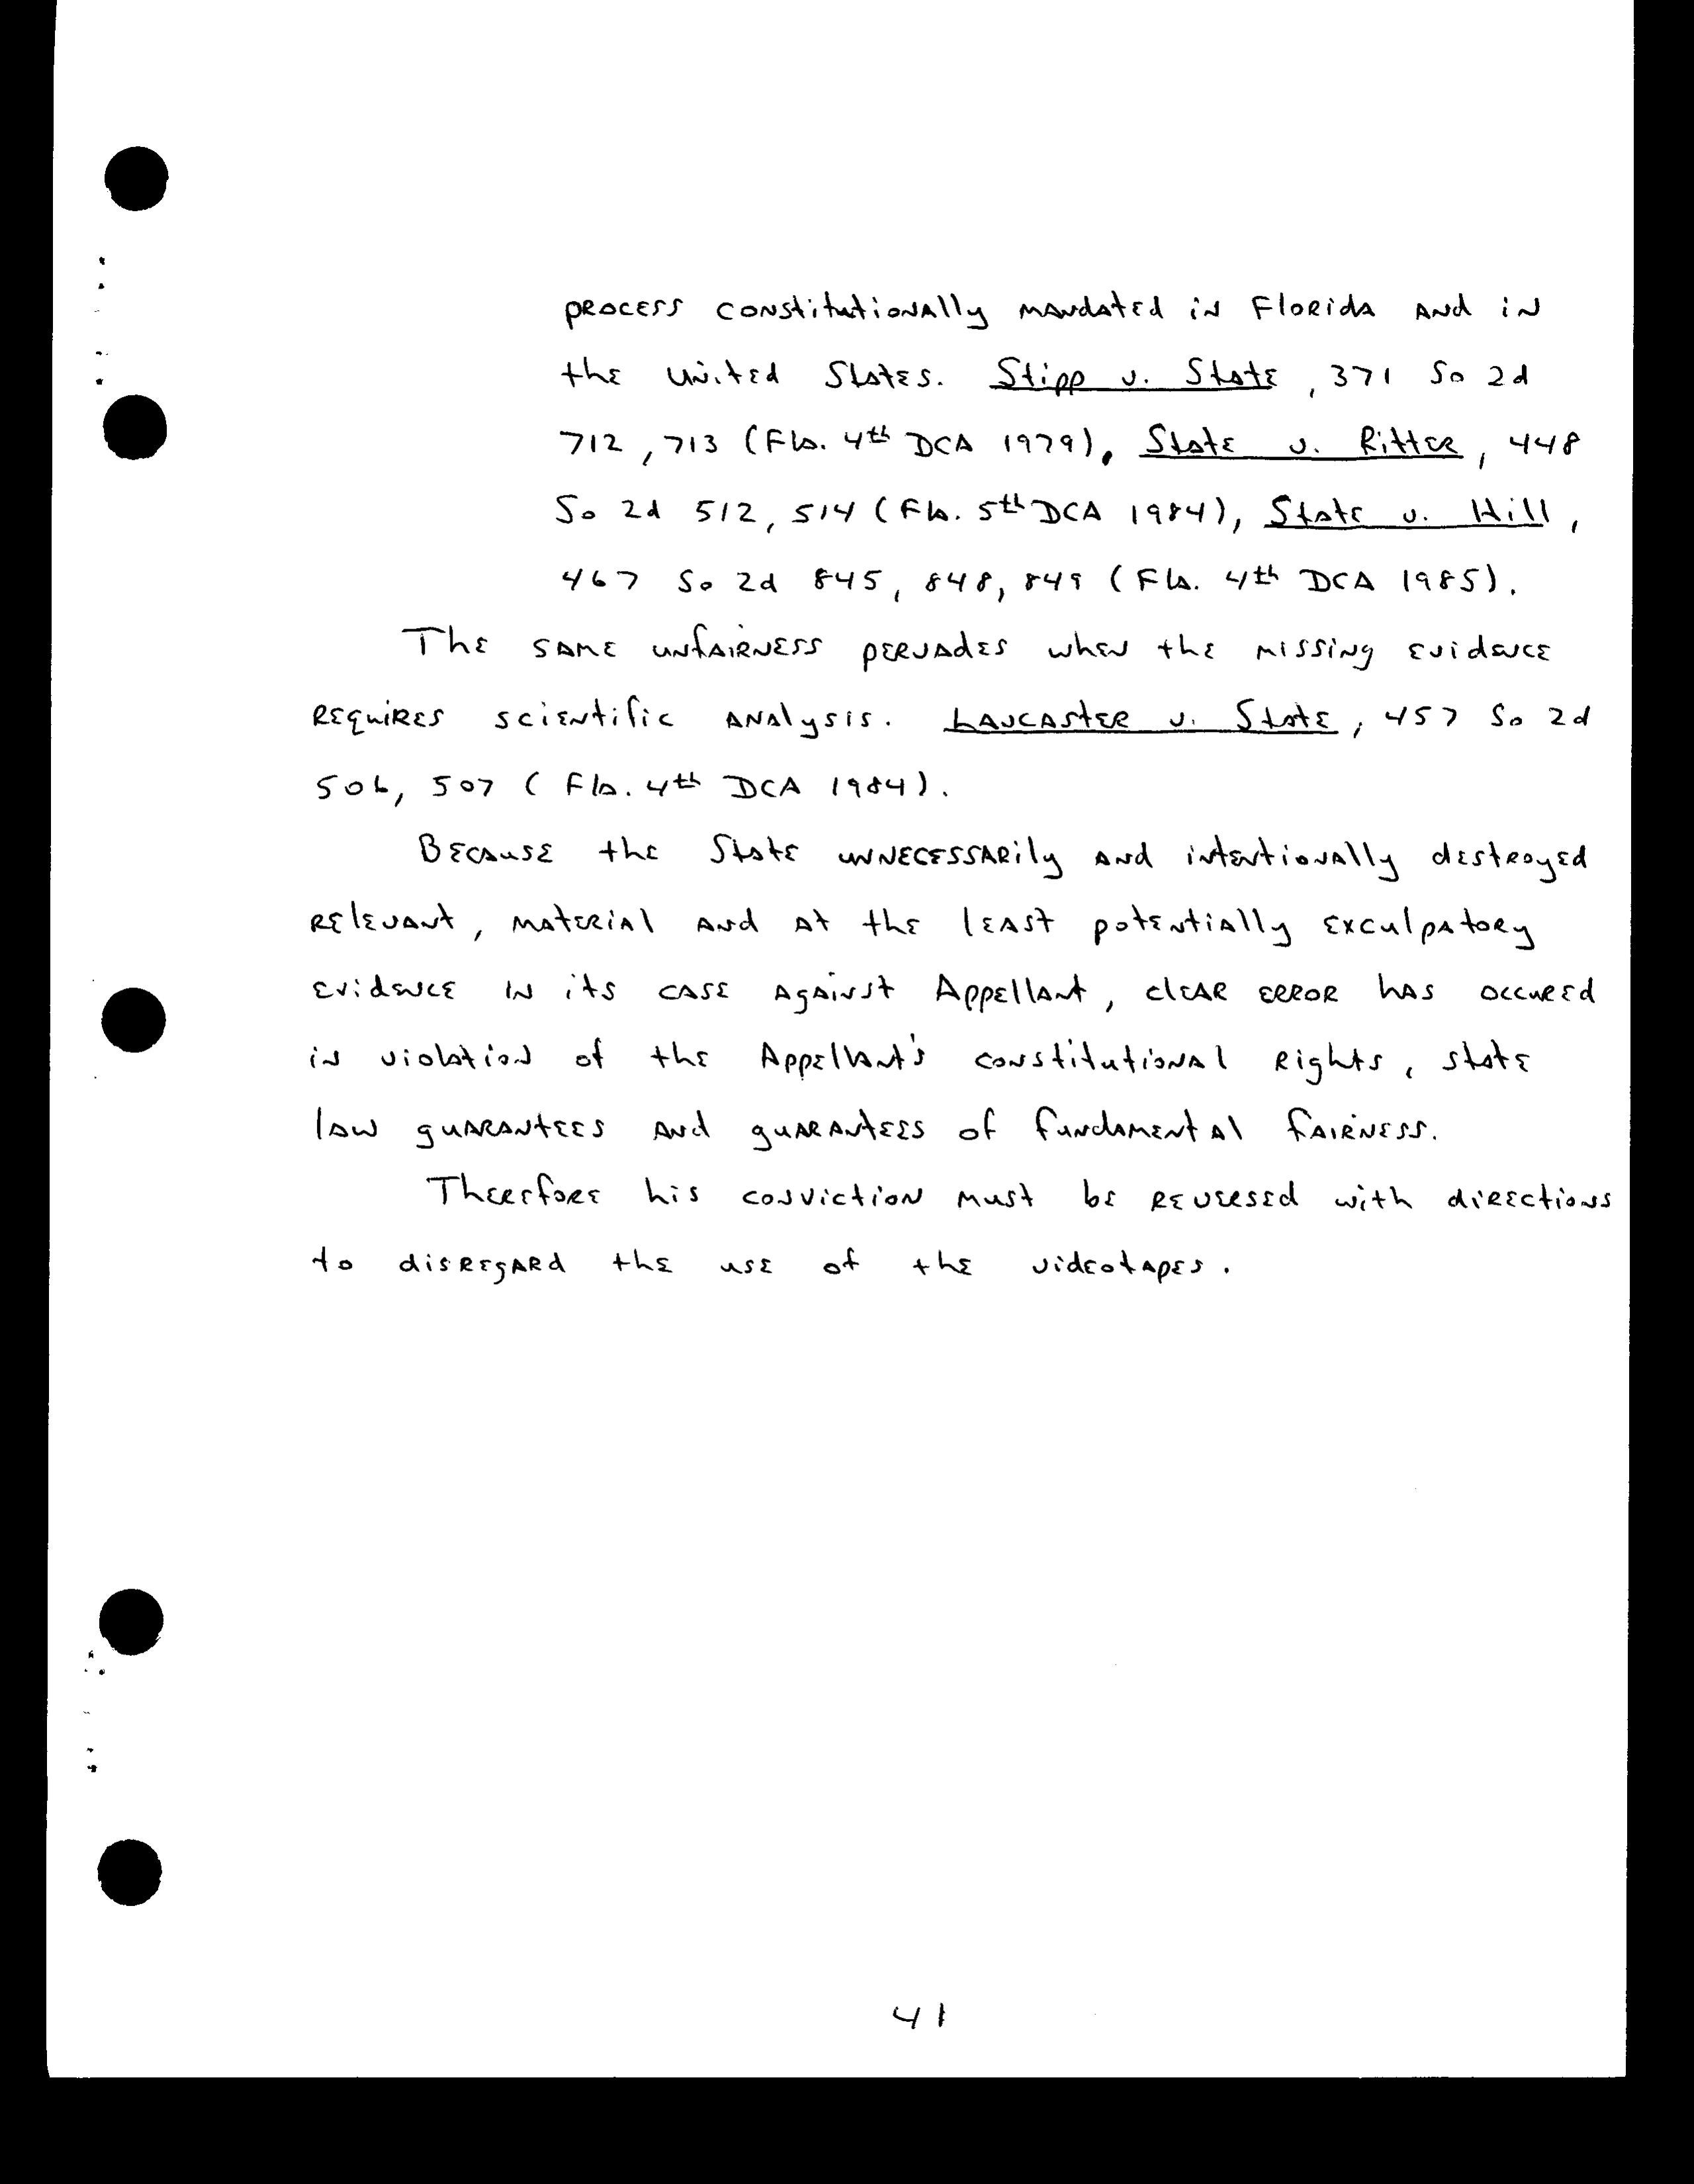 process constitutionally mandated in Florida and in
the United States. Stipp v. State, 371 So 2d
712, 713 (Fla. 4th DCA 1979), State v. Ritter, 448
So 2d 512, 514 (Fla. 5th DCA 1984), State v. Hill,
467 So 2d 845, 848, 849 (Fla. 4th DCA 1985).
The same unfairness pervades when the missing evidence
requires scientific analysis. Lancaster v. State, 457 So 2d
506, 507 (Fla. 4th DCA 1984).
Because the State unnecessarily and intentionally destroyed
relevant, material and at the least potentially exculpatory
evidence in its case against Appellant, clear error has occured
in violation of the Appellant's constitutional rights, state
law guarantees and guarantees of fundamental fairness.
Therefore his conviction must be reversed with directions
to disregard the use of the videotapes.
41